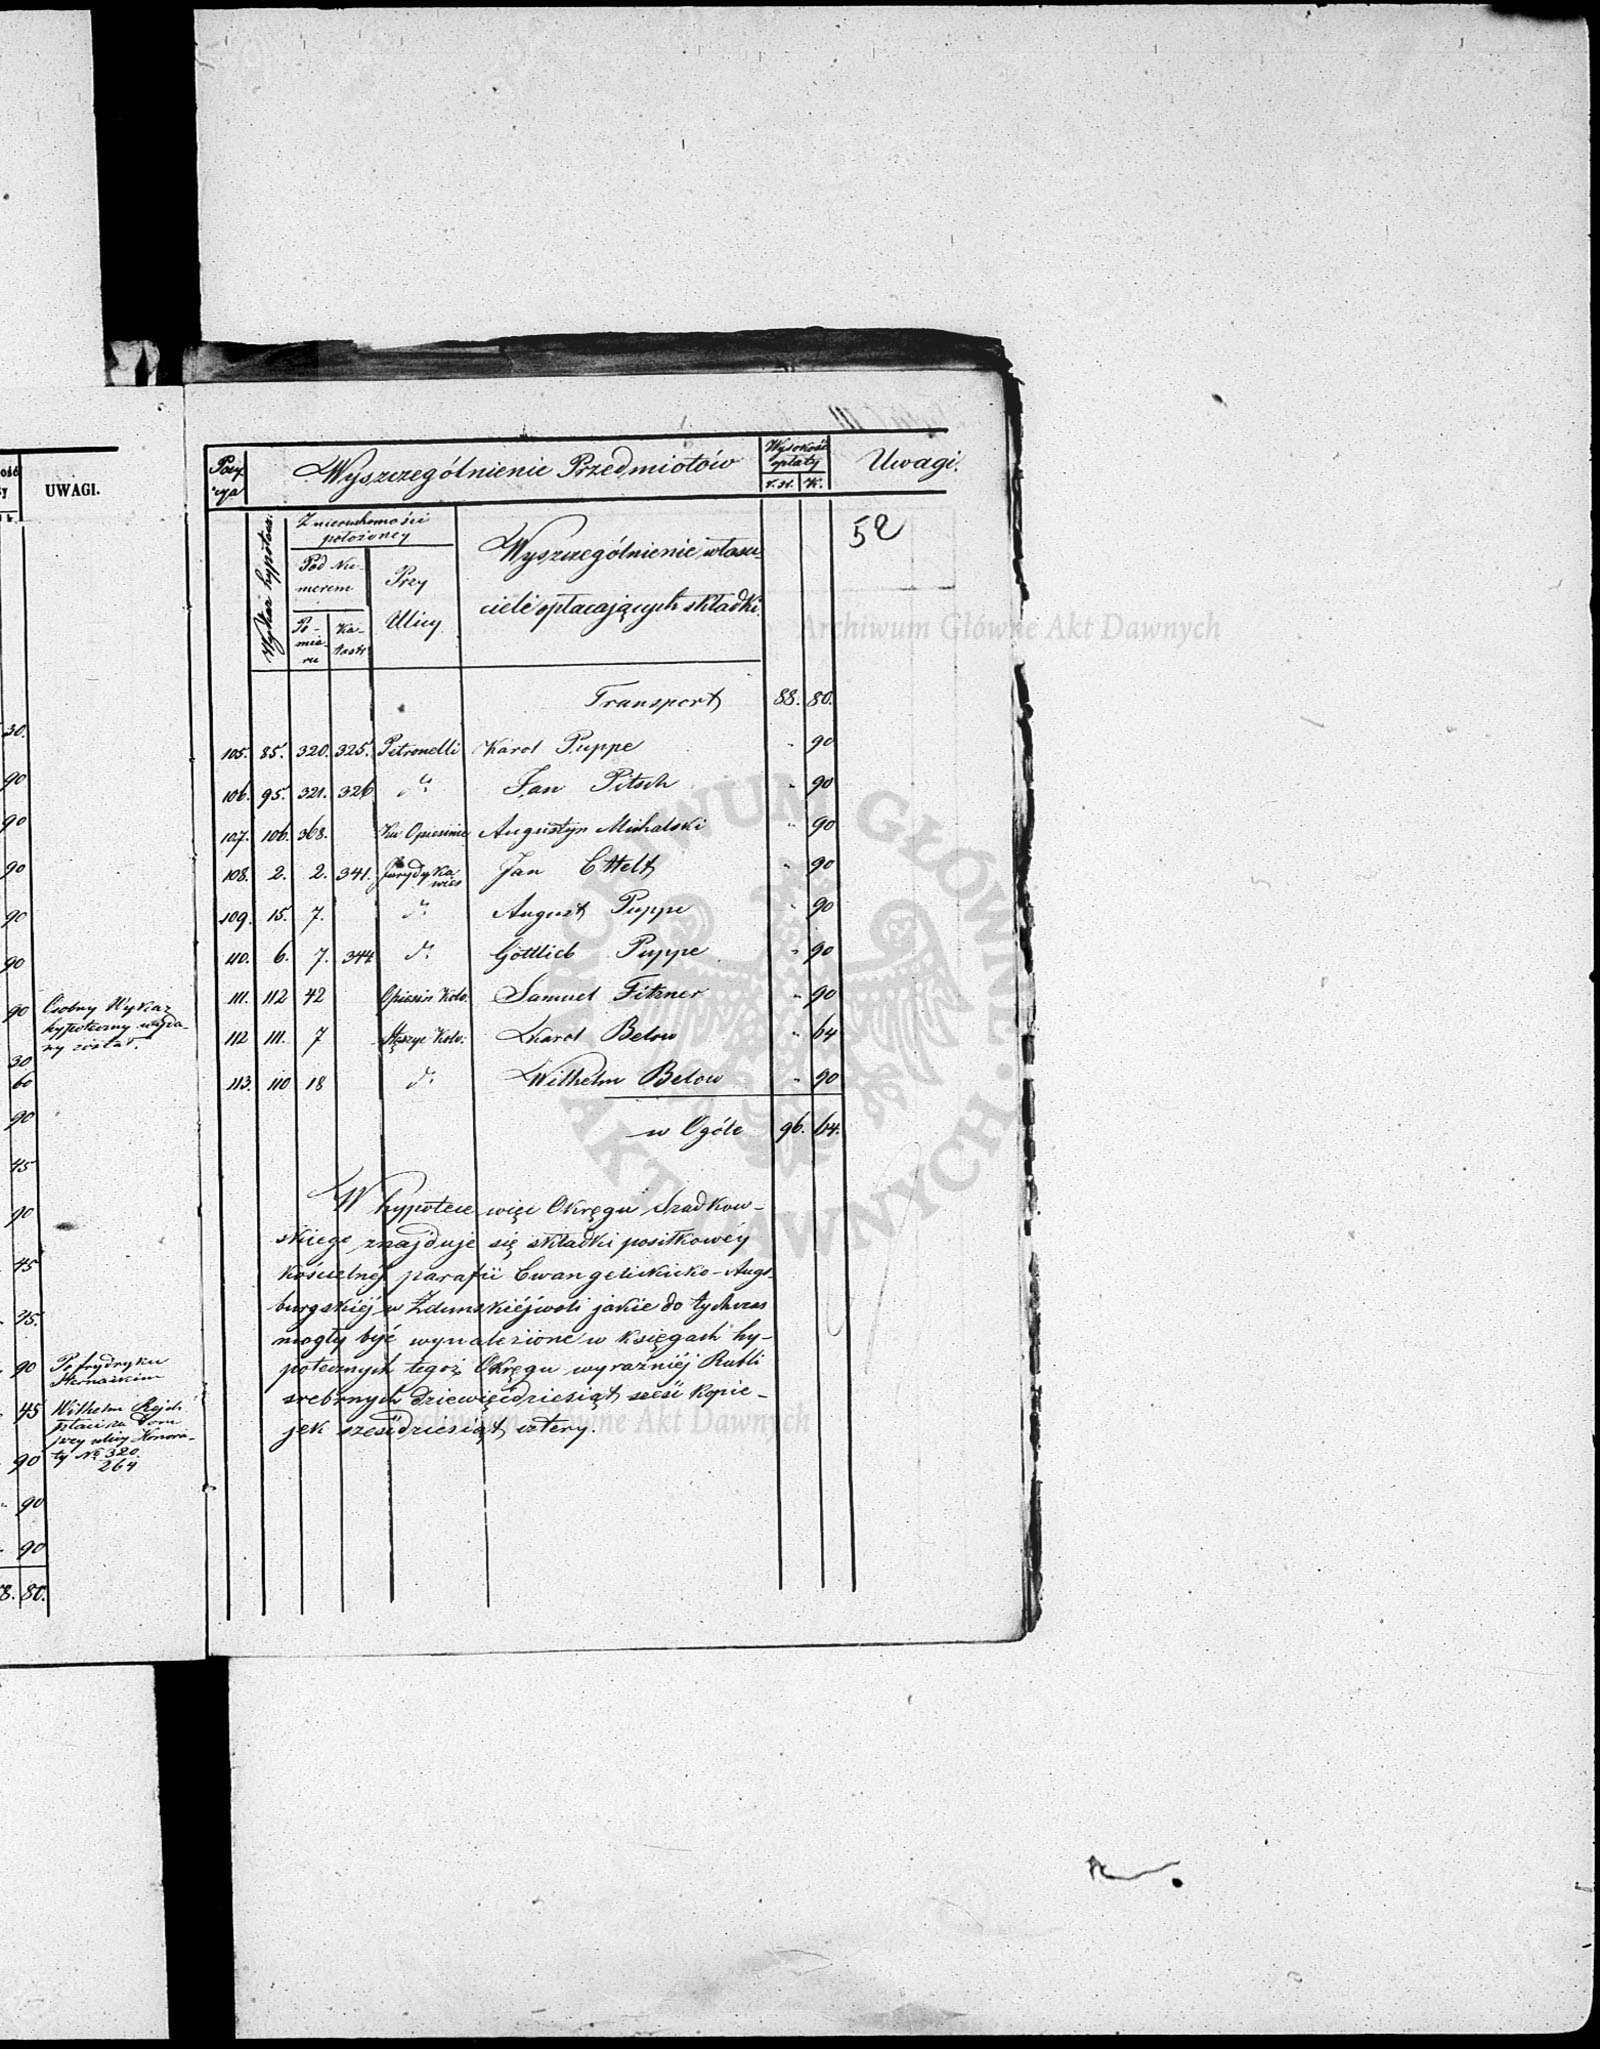 ość
y
k.
UWAGI.
30.
90
90
90
90
90
90 Osobny Wykaz
hypoteczny wyda-
ny został.
30
60
90
45
90
45
45.
90 Po frydryku
45 Wilhelm Rejch
płaci za dom
przy ulicy Honora-
90 ty № 320.
264
90
90
8. 80.
Pozy-
cya
Wyszczególnienie Przedmiotów
Wysokość
opłaty
r. sr. K.
Uwagi.
52
Wykaz hypotecz.
Z nieruchomości
położoney
Pod Nu-
merem
Po-
mia-
ru
Ka-
tastr
Przy
Ulicy
Wyszczególnienie właści-
cieli opłacających składki.
Transport 88. 80.
105. 85. 320. 325. Petronelli Karol Puppe " 90
106. 95. 321. 326 do Jan Pitsch " 90
107. 106. 368. Ku Opiesinie Augustyn Michalski " 90
108. 2. 2. 341. Jurydyka wies Jan Ettelt " 90
109. 15. 7. do August Puppe " 90
110. 6. 7. 344 do Gottlieb Puppe " 90
111. 112 42 Opiesin Kolo. Samuel Fitzner " 90
112 111. 7 Stęszyc Kolo. Karol Below " 64
113. 110 18 do Wilhelm Below " 90
w Ogóle 96. 64.
W hypotece więc Okręgu Szadkow-
skiego znajduje się składki posiłkowéy
kościelnéj parafii Ewangelickicko-Augs-
burgskiéj w Zdunskiéjwoli jakie do tychczas
mogły być wynalezione w księgach hy-
potecznych tegoż Okręgu wyraźniéj Rubli
srebrnych dziewięćdziesiąt sześć kopie-
jek sześćdziesiąt cztery.
Archiwum Główne Akt Dawnych
ARCHIWUM GŁÓWNE
AKT DAWNYCH
Archiwum Główne Akt Dawnych